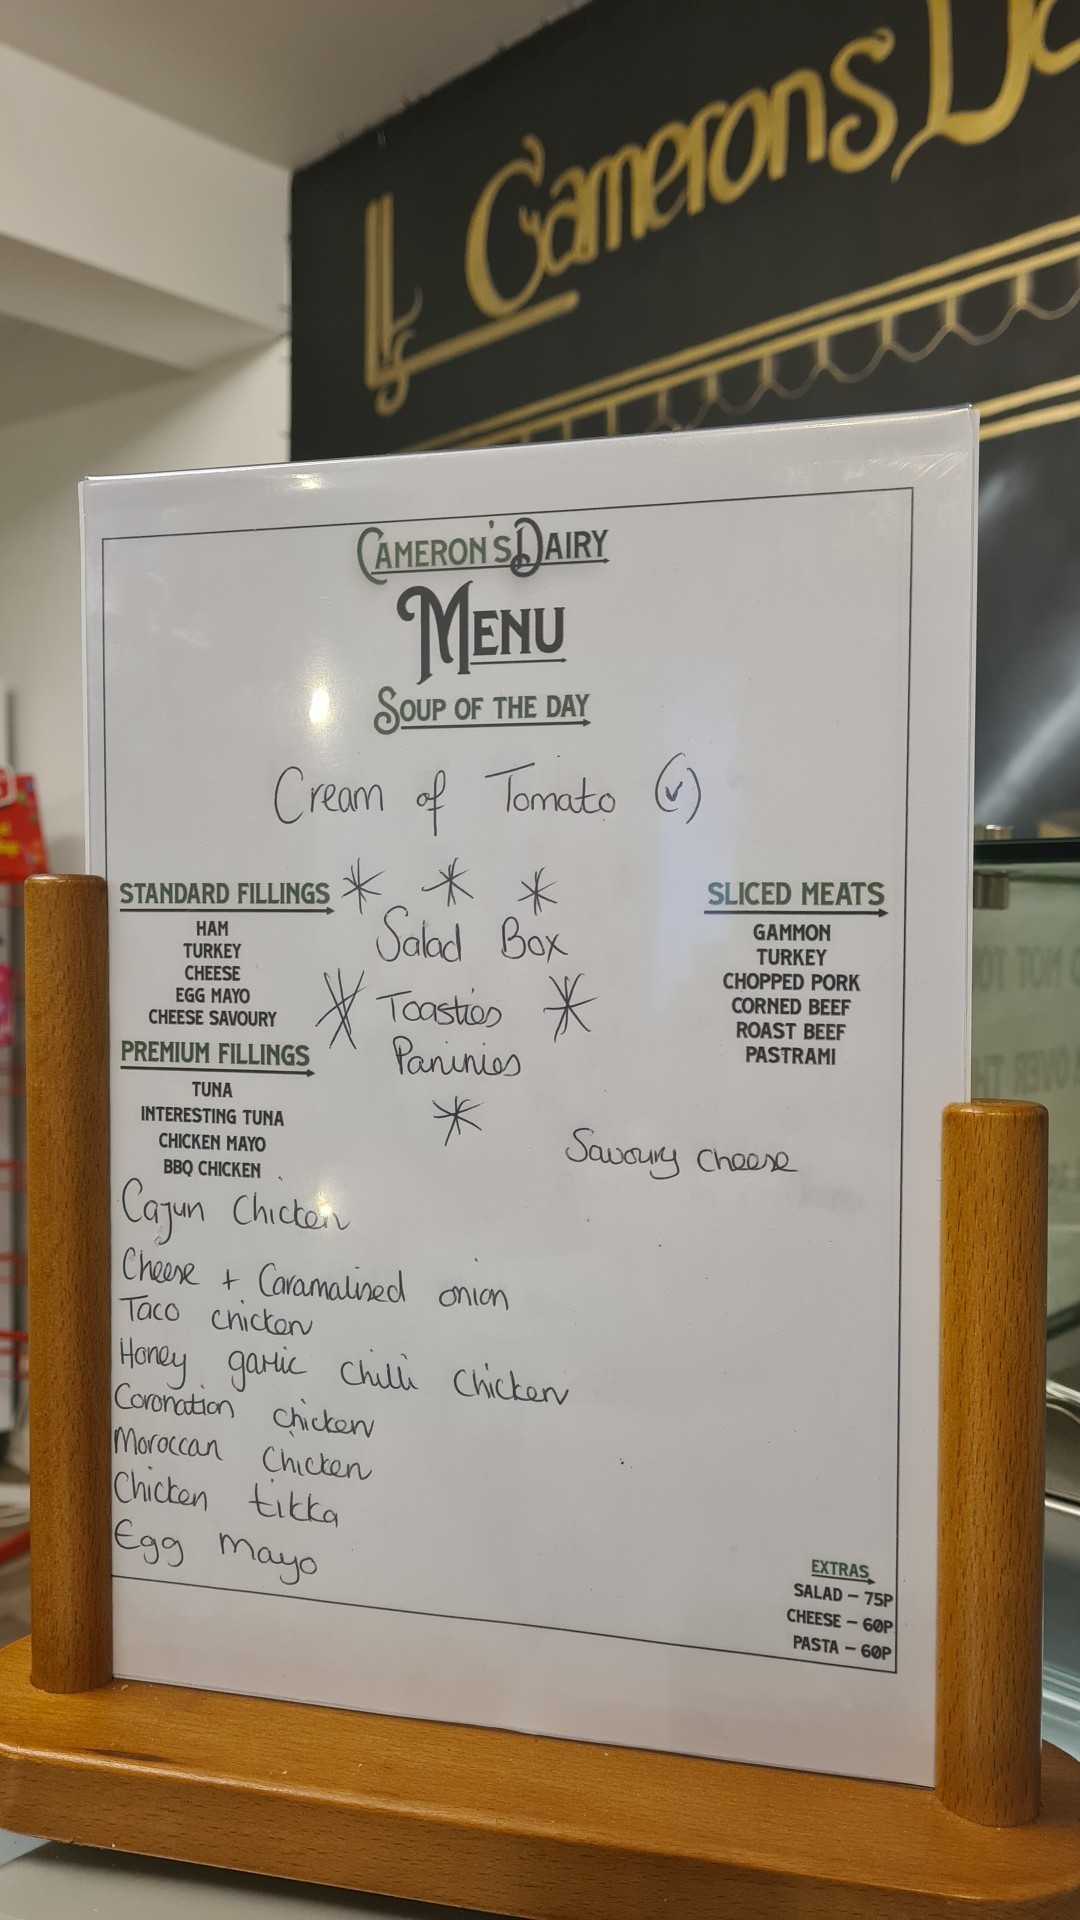 Camerons Da
CAMERON'S DAIRY
MENU
SOUP OF THE DAY
Cream of Tomato (v)
STANDARD FILLINGS
HAM
TURKEY
CHEESE
EGG MAYO
CHEESE SAVOURY
PREMIUM FILLINGS
TUNA
INTERESTING TUNA
CHICKEN MAYO
BBQ CHICKEN
Cajun Chicken
Cheese + Caramalised onion
Taco chicken
Honey garlic chilli chicken
Coronation chicken
Moroccan Chicken
Chicken tikka
Egg mayo
Salad Box
Toasties
Paninies
SLICED MEATS
GAMMON
TURKEY
CHOPPED PORK
CORNED BEEF
ROAST BEEF
PASTRAMI
Savoury cheese
EXTRAS
SALAD – 75P
CHEESE – 60P
PASTA – 60P